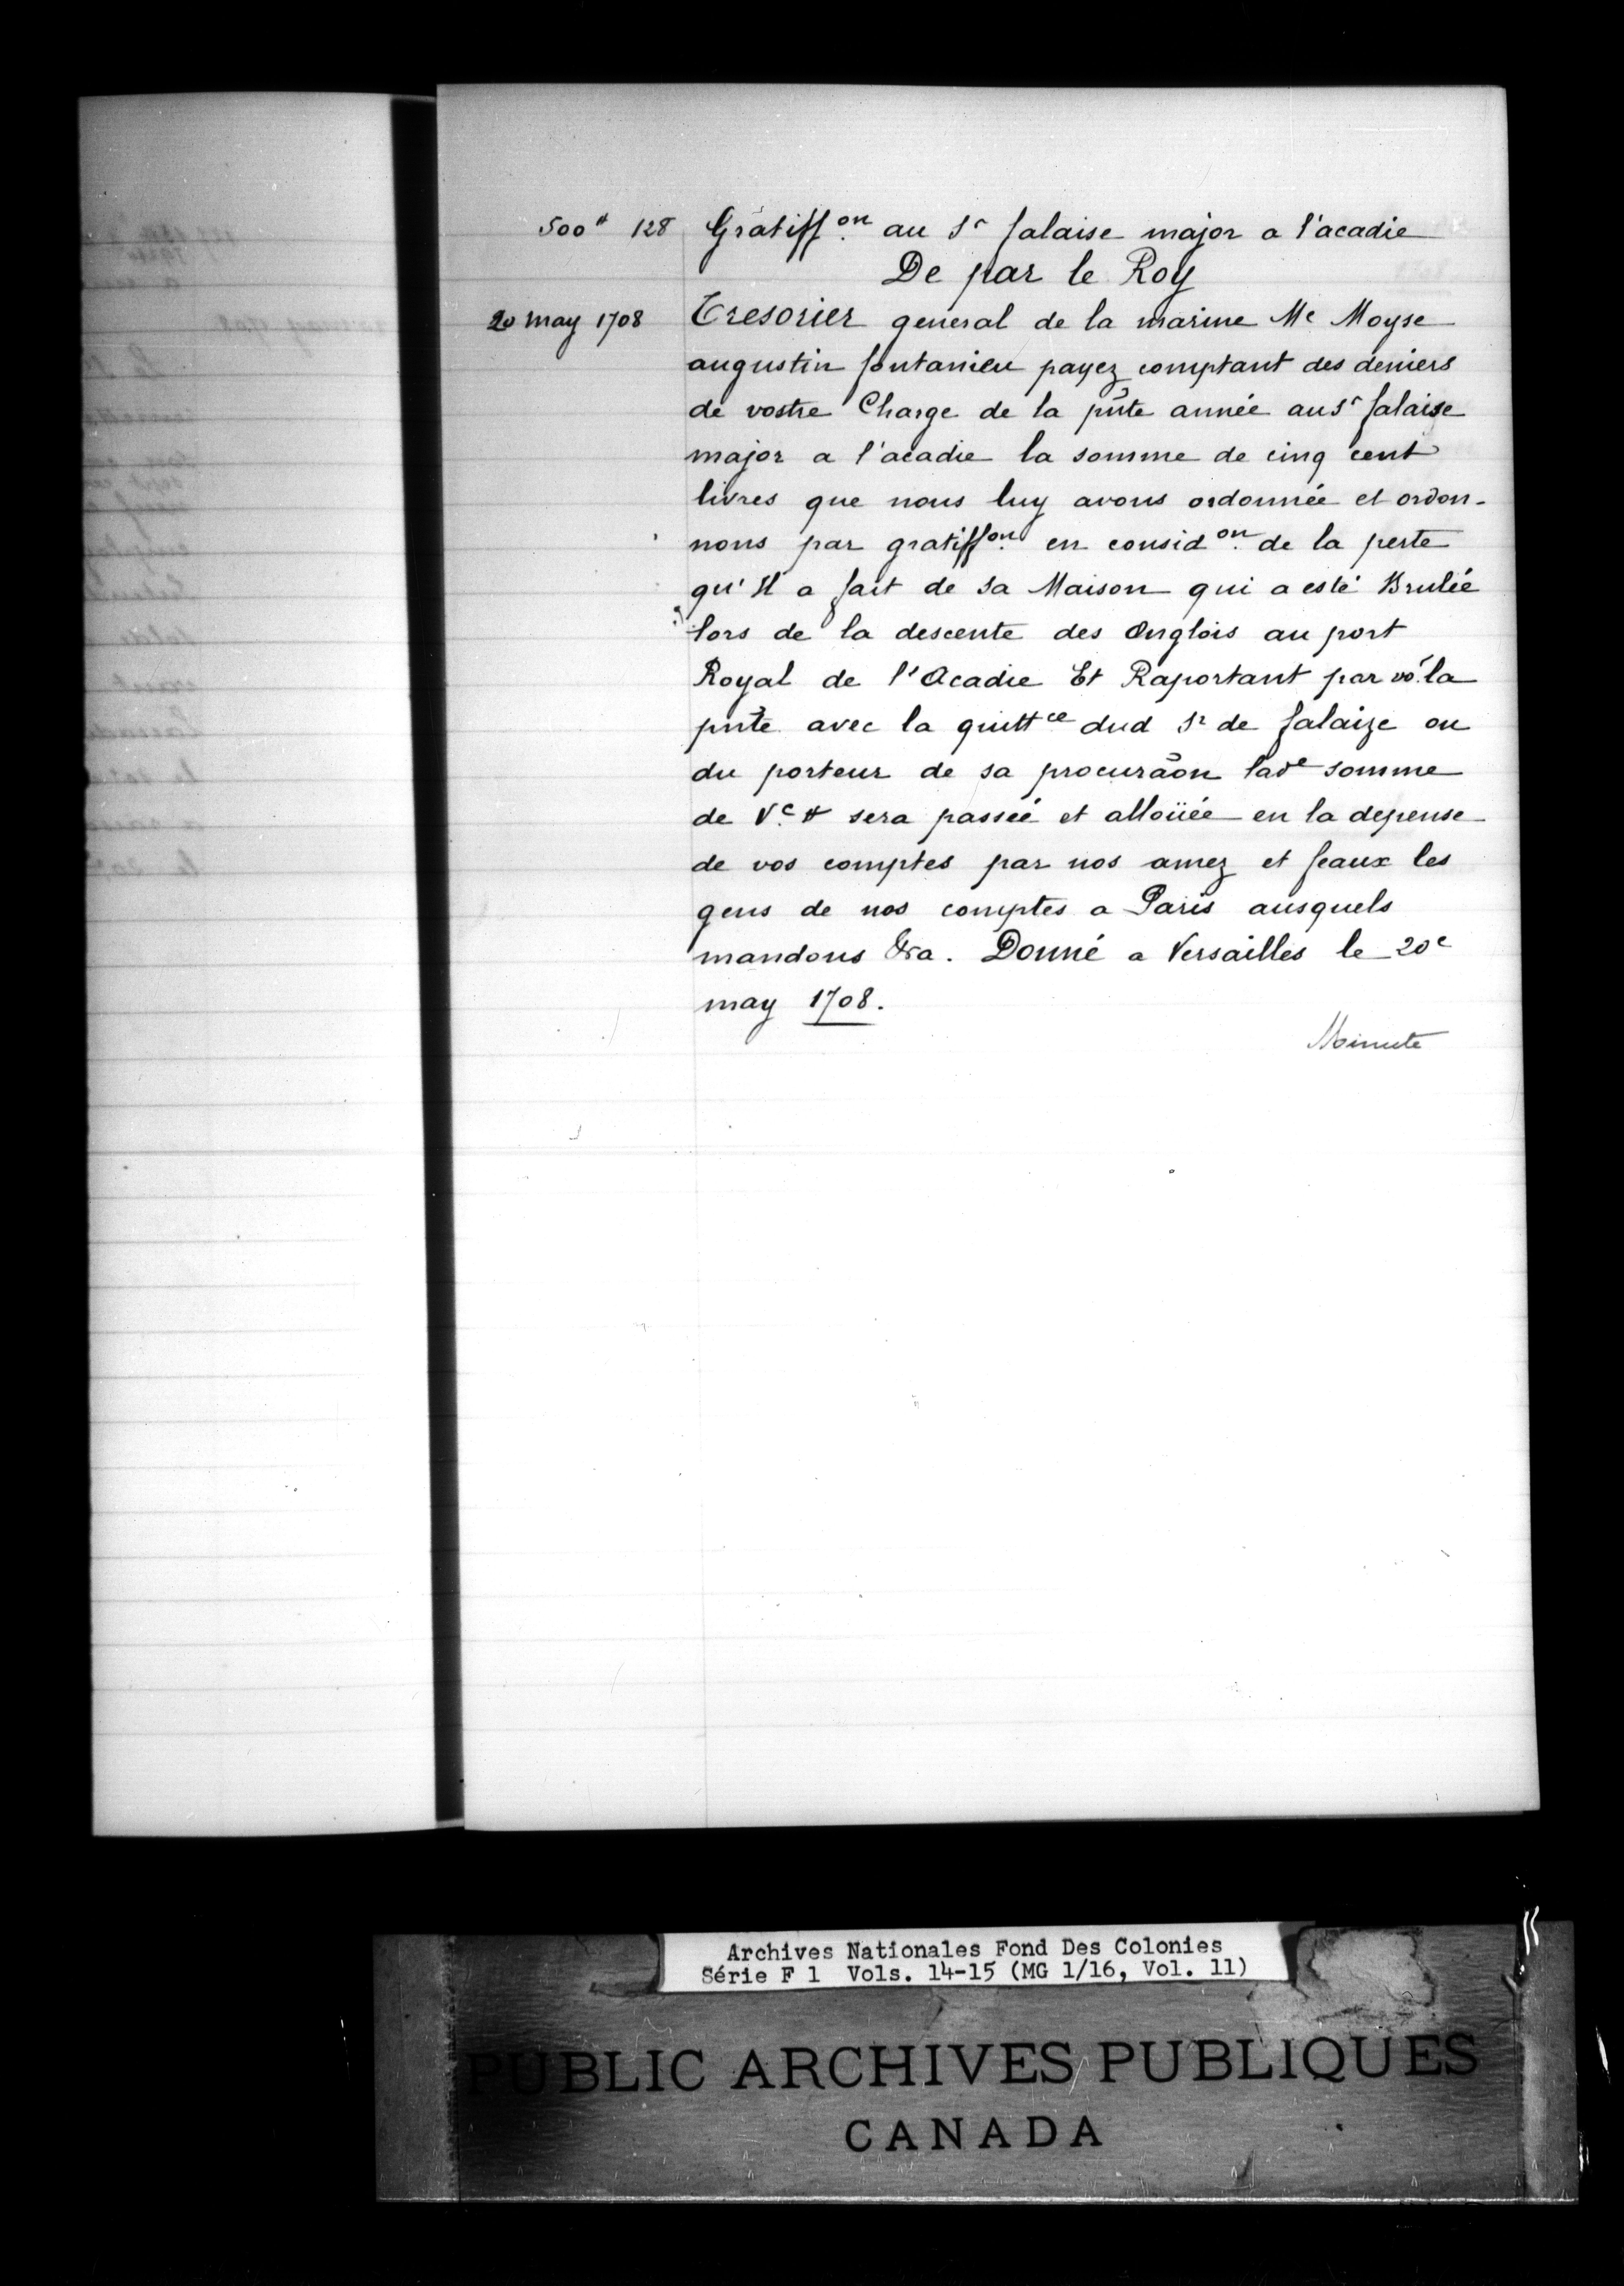 500# 128 Gratiff.on au Sr falaise major a l'acadie
De par le Roy
20 may 1708 Tresorier general de la marine Me Moyse
augustin fontanieu payez comptant des deniers
de vostre Charge de la pñte année au Sr falaise
major a l'acadie la somme de cinq cent
livres que nous luy avons ordonnée et ordon-
nons par gratiff.on en consid.on de la perte
qu'Il a fait de sa Maison qui a esté Brulée
lors de la descente des Anglois au port
Royal de l'Acadie Et Raportant par vo. la
pñte avec la quittce dud Sr de falaize ou
du porteur de sa procurãon lade somme
de Vc # sera passée et alloüée en la depense
de vos comptes par nos amez et feaux les
gens de nos comptes a Paris ausquels
mandons &ra. Donné a Versailles le 20e
may 1708.
Minute
Archives Nationales Fond Des Colonies
Série F 1 Vols. 14-15 (MG 1/16, Vol. 11)
PUBLIC ARCHIVES PUBLIQUES
CANADA